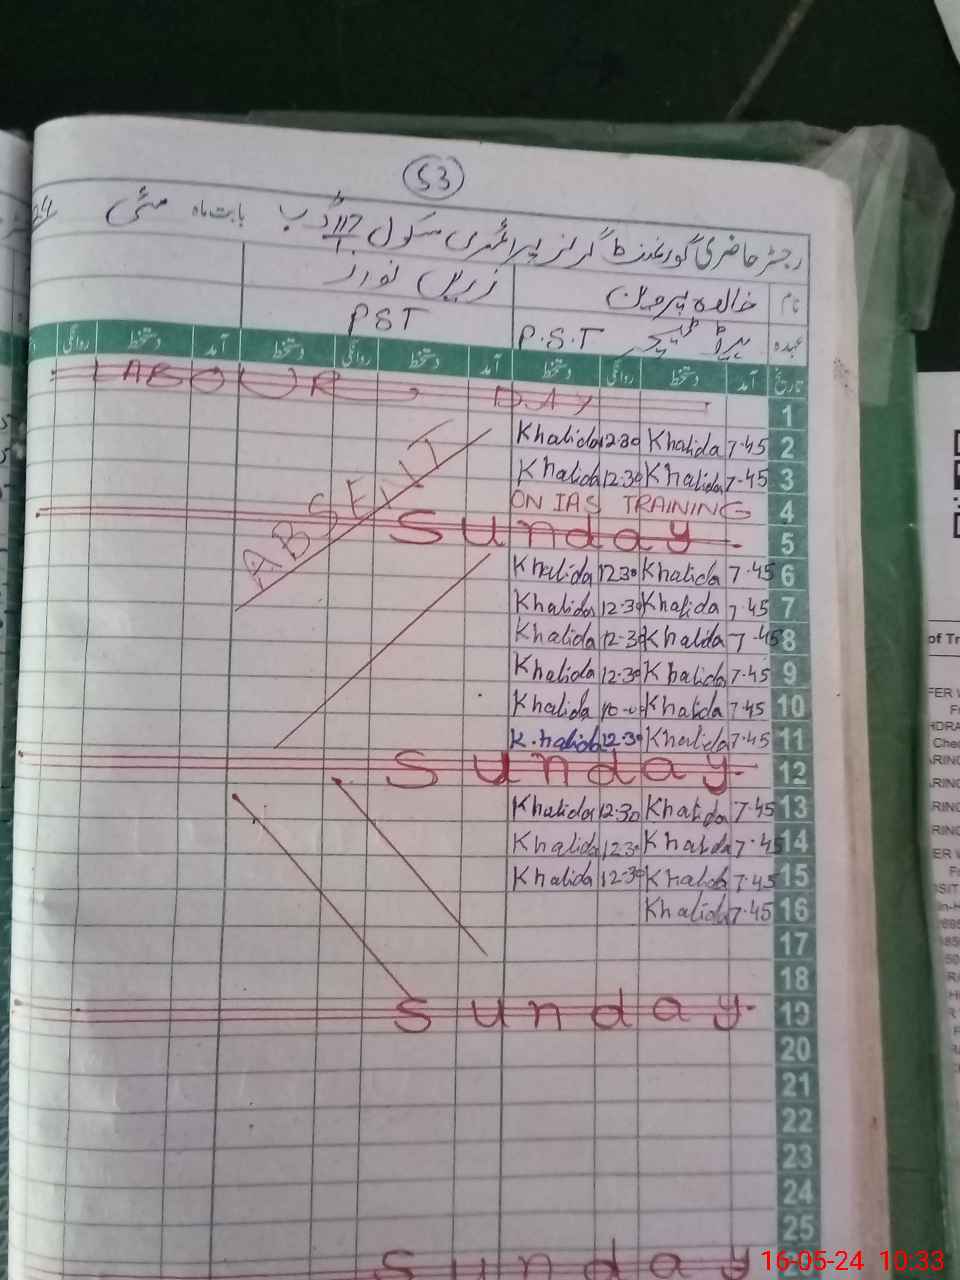 53
رجسٹر حاضری گورنمنٹ گرلز پرائمری سکول 117 ڈ ب بابت ماہ مئی 24
نام خالدہ پروین زریں نواز
عہدہ ہیڈ ٹیچر P.S.T PST
تاریخ آمد دستخط روانگی دستخط آمد دستخط روانگی دستخط آمد دستخط روانگی
1 LABOUR DAY
2 7.45 Khalida 12.30 Khalida
3 7.45 Khalida 12.30 Khalida
4 ON IAS TRAINING
ABSENT
5 Sunday
6 7.45 Khalida 12.30 Khalida
7 7.45 Khalida 12.30 Khalida
8 7.45 Khalida 12.30 Khalida
9 7.45 Khalida 12.30 Khalida
10 7.45 Khalida 10-0 Khalida
11 7.45 Khalida 12.30 Khalida
12 Sunday
13 7.45 Khalida 12.30 Khalida
14 7.45 Khalida 12.30 Khalida
15 7.45 Khalida 12.30 Khalida
16 7.45 Khalida
17
18
19 Sunday
20
21
22
23
24
25
Sunday
16-05-24 10:33
of Tr